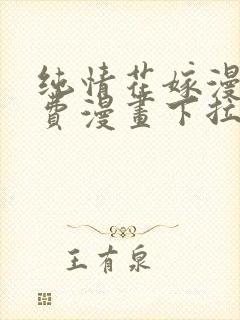 纯情花嫁漫
費漫畫下拉
王有泉